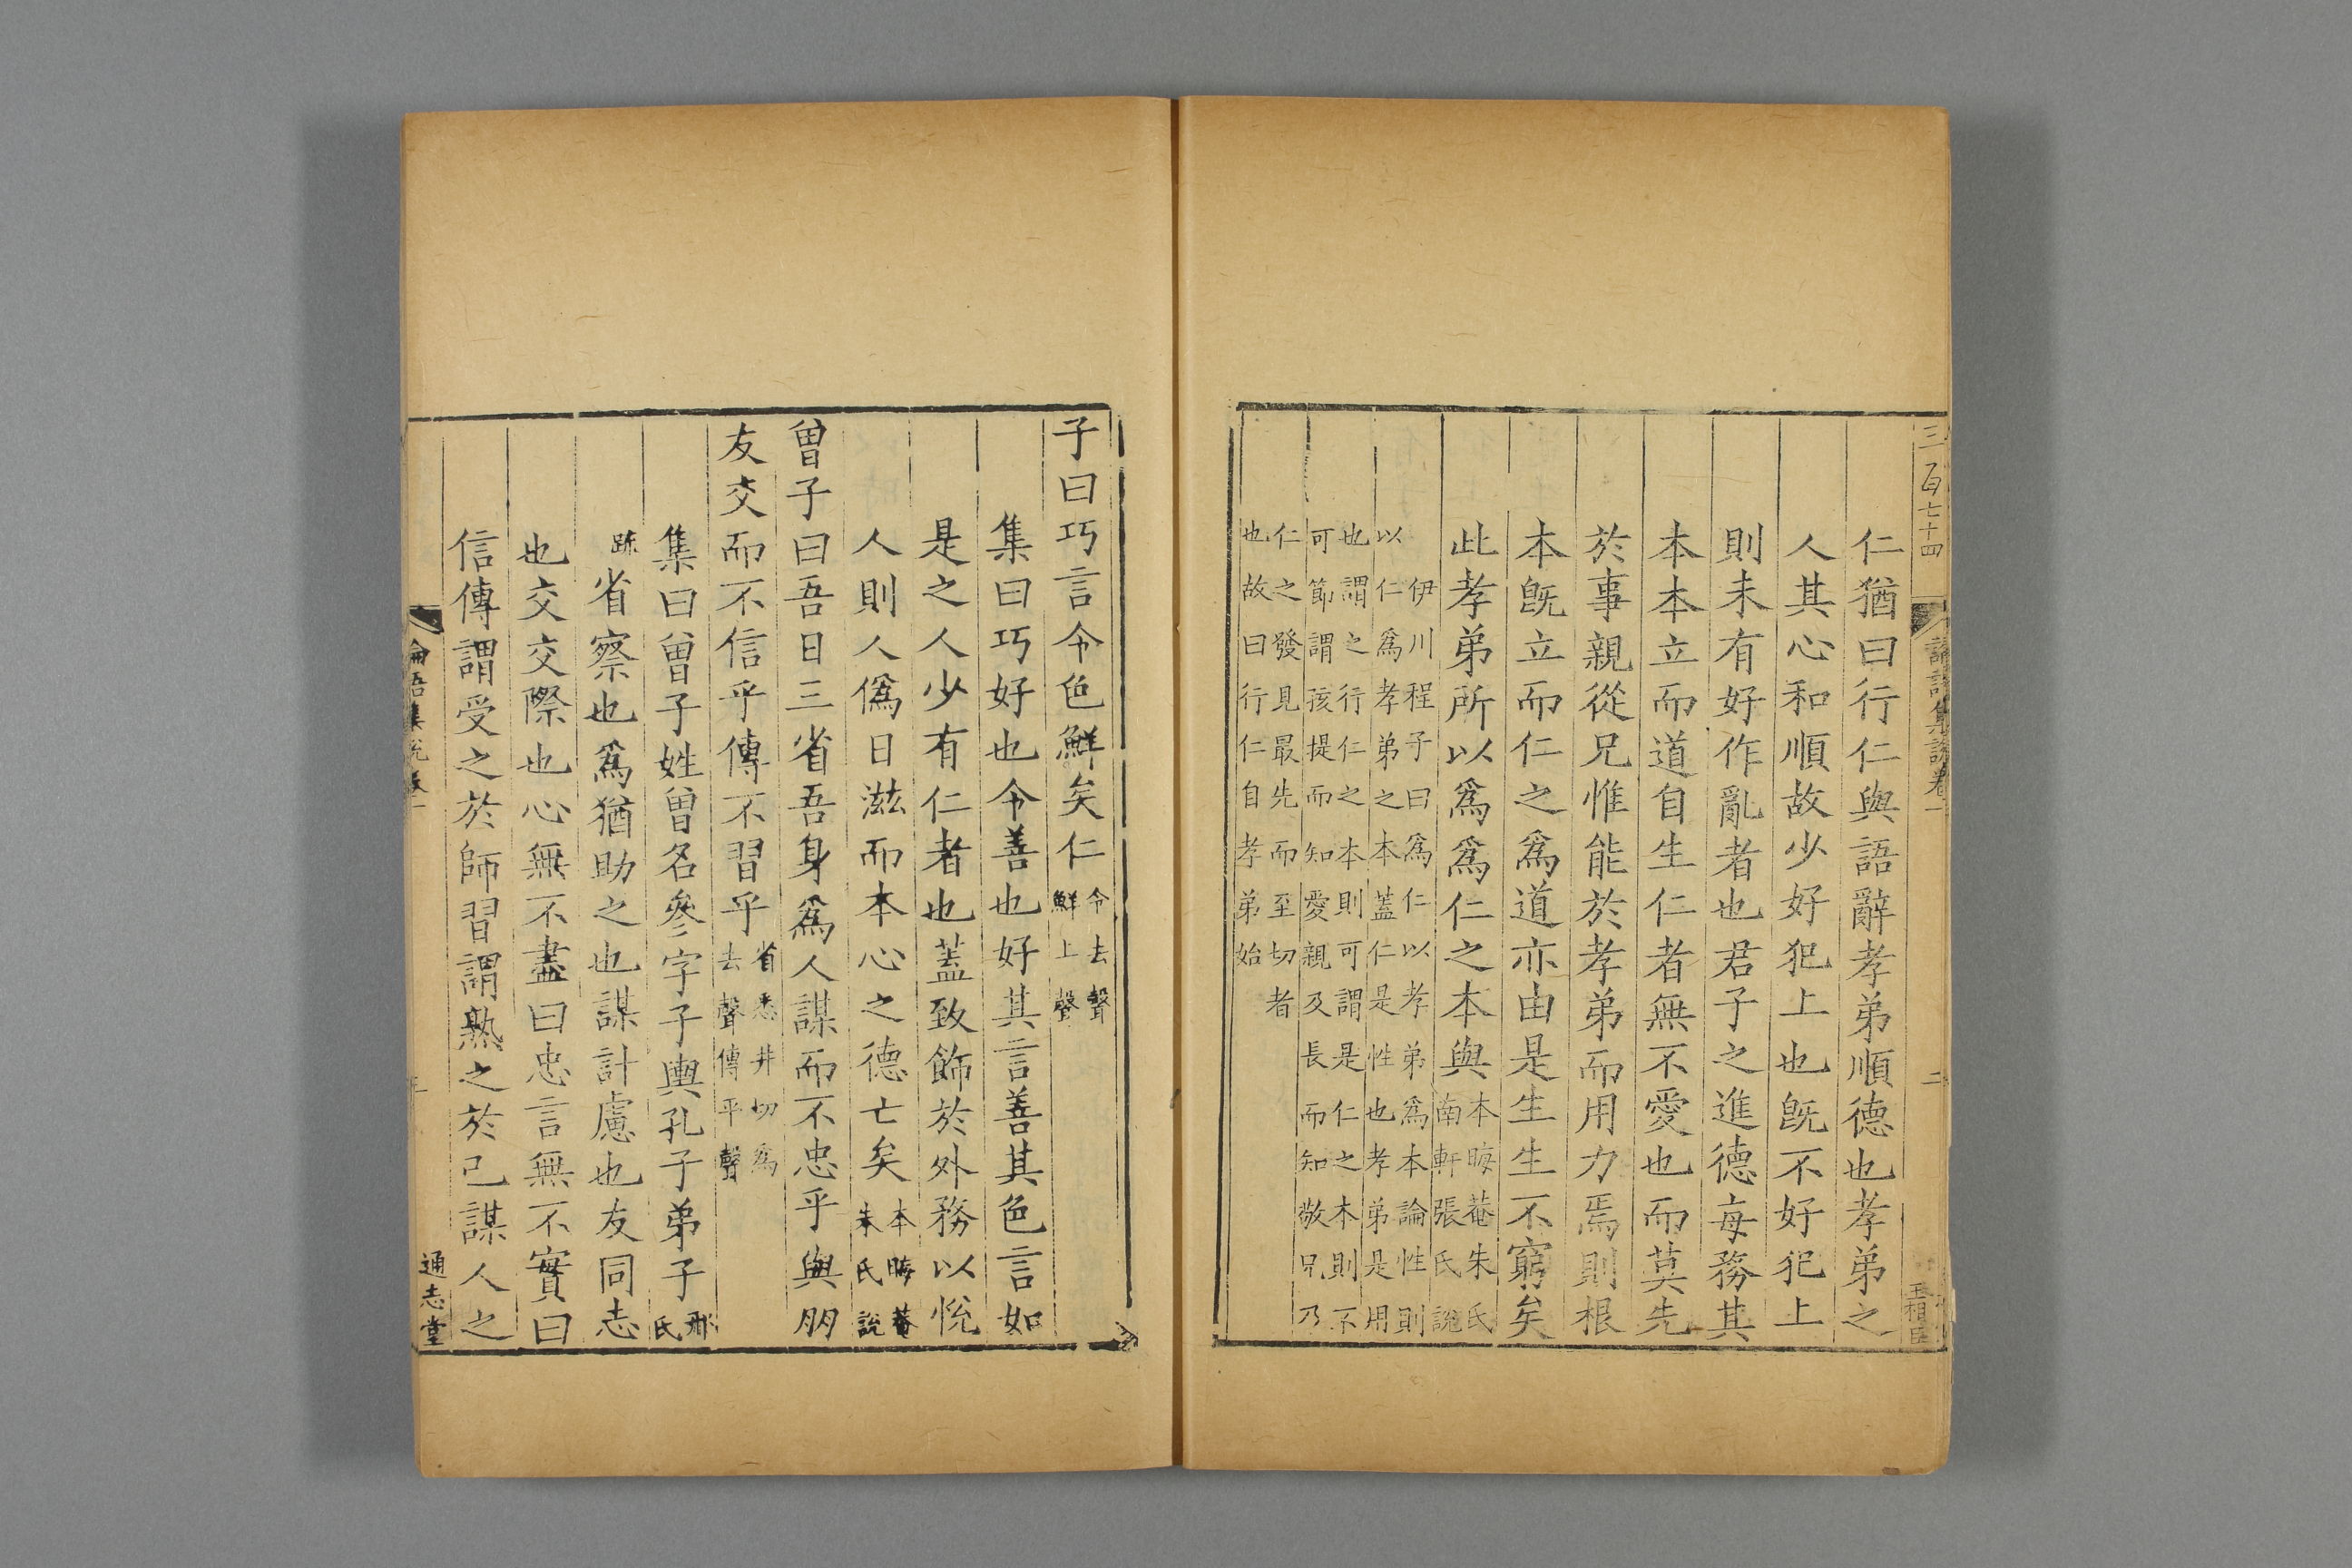 三百七十四
二
仁猶曰行仁與語辭孝弟順德也孝弟之
人其心和順故少好犯上也旣不好犯上
則未有好作亂者也君子之進德每務其
本本立而道自生仁者無不愛也而莫先
於事親從兄惟能於孝弟而用力焉則根
本旣立而仁之爲道亦由是生生不窮矣
此孝弟所以爲爲仁之本與本晦菴朱氏
南軒張氏說
伊川程子曰爲仁以孝弟爲本論性則
以仁爲孝弟之本蓋仁是性也孝弟是用
也謂之行仁之本則可謂是仁之本則不
可節謂孩提而知愛親及長而知敬兄乃
仁之發見最先而至切者
也故曰行仁自孝弟始
子曰巧言令色鮮矣仁令去聲
鮮上聲
集曰巧好也令善也好其言善其色言如
是之人少有仁者也蓋致飾於外務以悅
人則人僞日滋而本心之德亡矣本晦菴
朱氏說
曾子曰吾日三省吾身爲人謀而不忠乎與朋
友交而不信乎傳不習乎省悉井切爲
去聲傳平聲
集曰曾子姓曾名參字子輿孔子弟子邢
氏
䟽省察也爲猶助之也謀計慮也友同志
也交交際也心無不盡曰忠言無不實曰
信傳謂受之於師習謂熟之於己謀人之
論語集說卷一
通志堂